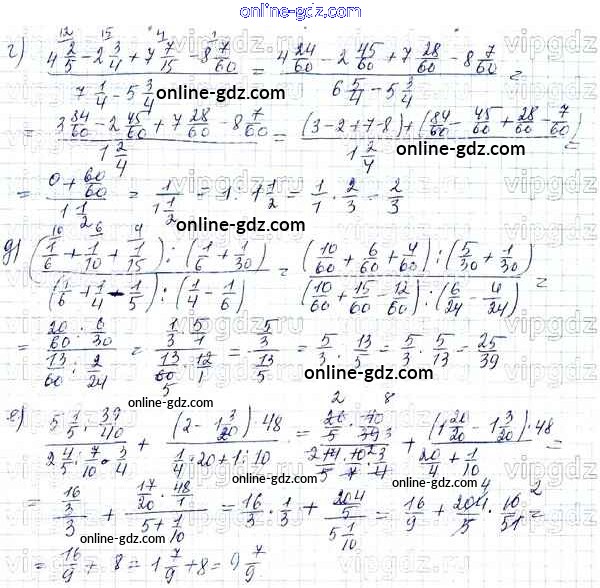 online-gdz.com
г) (4 2/5 - 2 3/4 + 7 7/15 - 8 7/60) / (7 1/4 - 5 3/4) = (4 24/60 - 2 45/60 + 7 28/60 - 8 7/60) / (6 5/4 - 5 3/4) =
online-gdz.com
= (3 84/60 - 2 45/60 + 7 28/60 - 8 7/60) / (1 2/4) = ((3-2+7-8) + (84/60 - 45/60 + 28/60 - 7/60)) / (1 2/4) =
online-gdz.com
= (0 + 60/60) / (1 1/2) = 1 / (1 1/2) = 1 : 1 1/2 = 1/1 · 2/3 = 2/3
online-gdz.com
д) ((1/6 + 1/10 + 1/15) : (1/6 + 1/30)) / ((1/6 + 1/4 - 1/5) : (1/4 - 1/6)) = ((10/60 + 6/60 + 4/60) : (5/30 + 1/30)) / ((10/60 + 15/60 - 12/60) : (6/24 - 4/24)) =
= (20/60 : 6/30) / (13/60 : 2/24) = (1/3 · 5/1) / (13/60 · 12/1) = (5/3) / (13/5) = 5/3 : 13/5 = 5/3 · 5/13 = 25/39
online-gdz.com
online-gdz.com
е) (5 1/5 : 39/40) / (2 4/5 : 7/10 · 3/4) + ((2 - 1 3/20) · 48) / (1/4 · 20 + 1 : 10) = (26/5 · 40/39) / (14/5 · 10/7 · 3/4) + ((1 20/20 - 1 3/20) · 48) / (20/4 + 1/10) =
= (16/3) / 3 + (17/20 · 48/1) / (5 + 1/10) = 16/3 · 1/3 + (204/5) / (5 1/10) = 16/9 + 204/5 · 10/51 =
= 16/9 + 8 = 1 7/9 + 8 = 9 7/9
online-gdz.com
vipgdz.ru